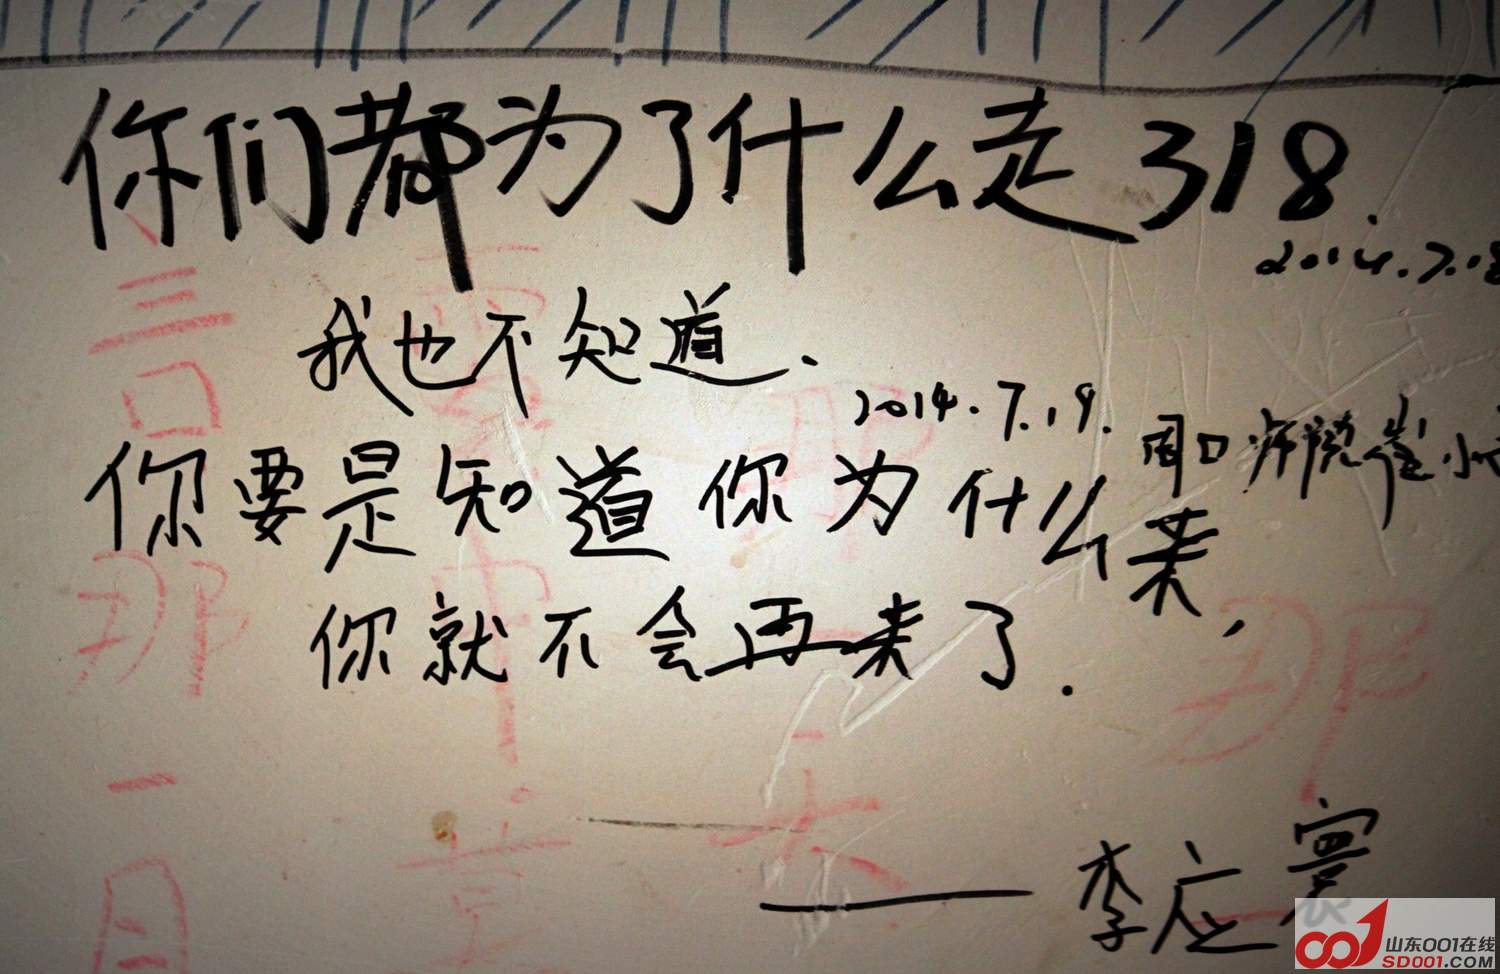 你们都为了什么走318.
2014.7.18
我也不知道.
2014.7.19.
周口师院崔小
你要是知道你为什么来,
你就不会再来了.
——李应寰
言
那
一
月
那
那
山东001在线
SD001.COM